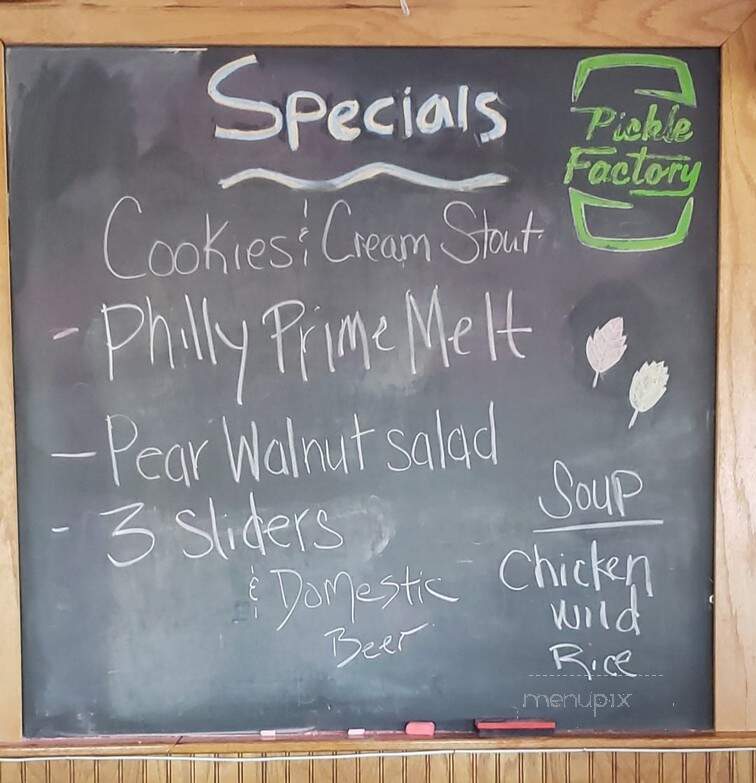 Specials
Pickle
Factory
Cookies & Cream Stout
- Philly Prime Melt
- Pear Walnut salad
- 3 Sliders
& Domestic
Beer
Soup
Chicken
Wild
Rice
menupix